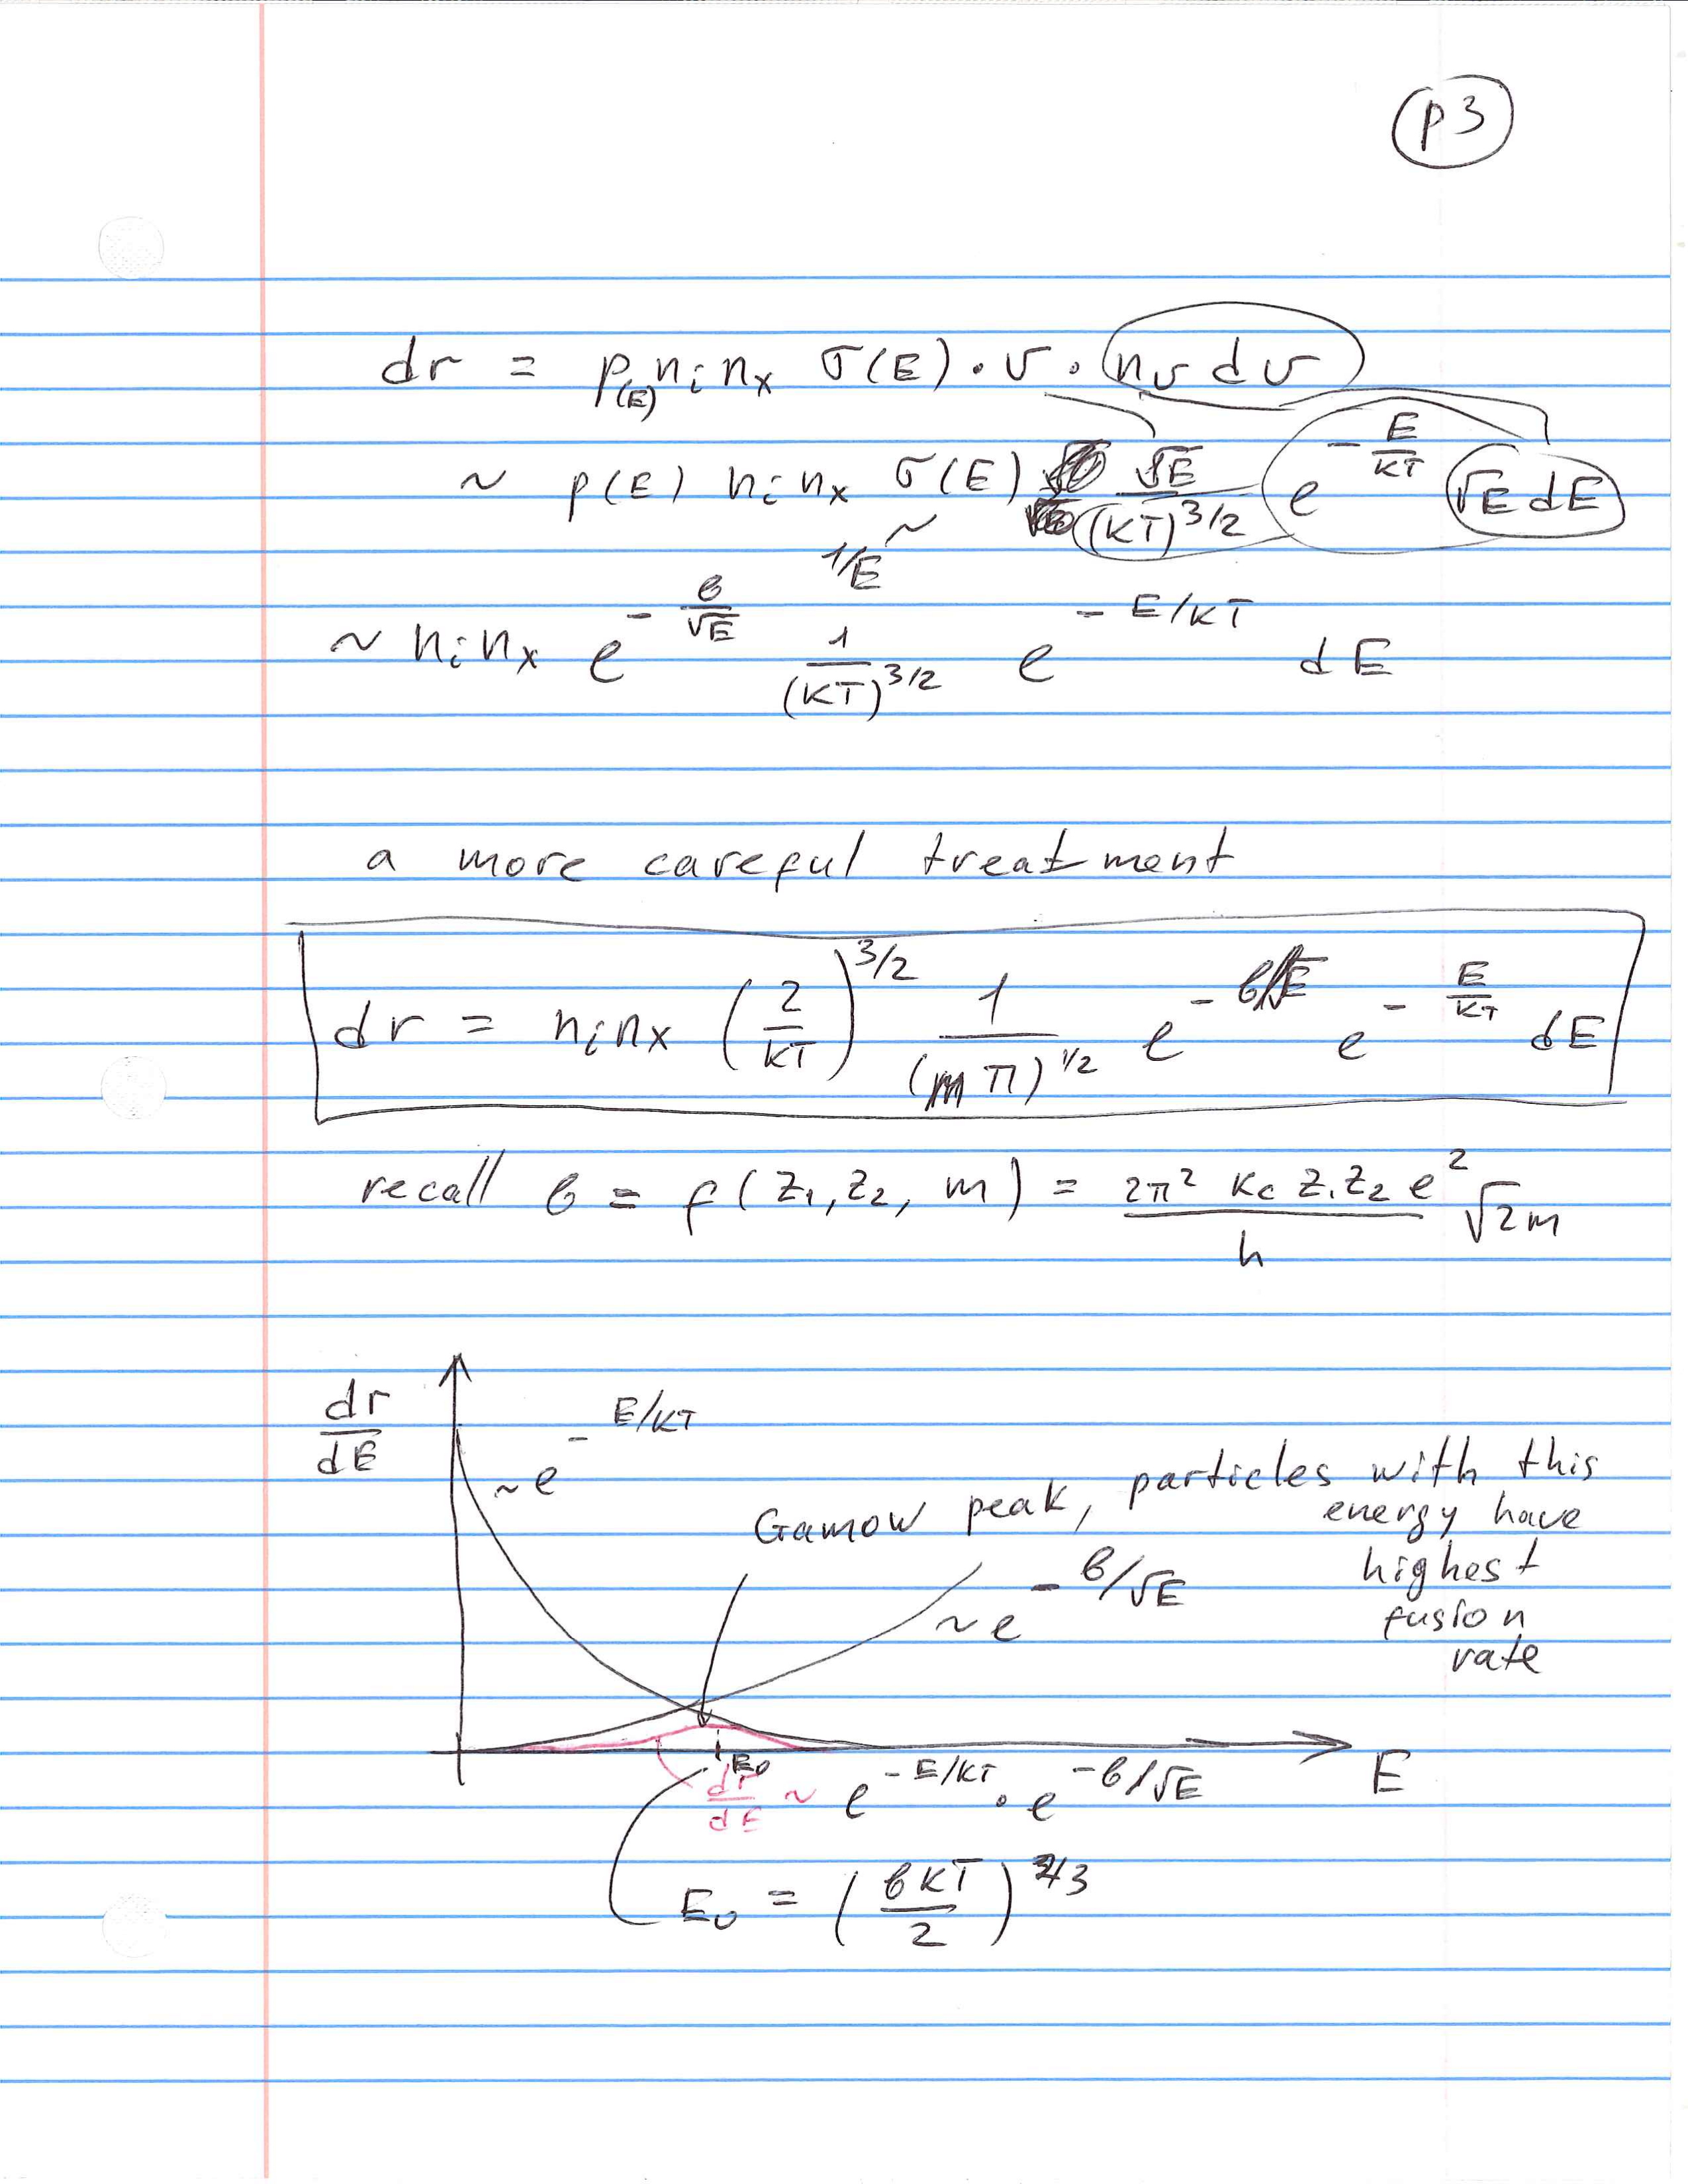 p3
dr = p(E) nᵢ nₓ σ(E) · v · n_v dv
~ p(E) nᵢ nₓ σ(E) √E/(kT)^3/2 e^(-E/kT) √E dE
~
1/E
~ nᵢ nₓ e^(-b/√E) 1/(kT)^3/2 e^(-E/kT) dE
a more careful treatment
dr = nᵢ nₓ (2/kT)^3/2 1/(mπ)^1/2 e^(-b/√E) e^(-E/kT) dE
recall b = f(Z₁, Z₂, m) = 2π² kc Z₁Z₂ e²/h √2m
dr/dE
~e^(-E/kT)
Gamow peak, particles with this
energy have
highest
fusion
rate
~e^(-b/√E)
E₀
E
dr/dE ~ e^(-E/kT) · e^(-b/√E)
E₀ = (bkT/2)^2/3